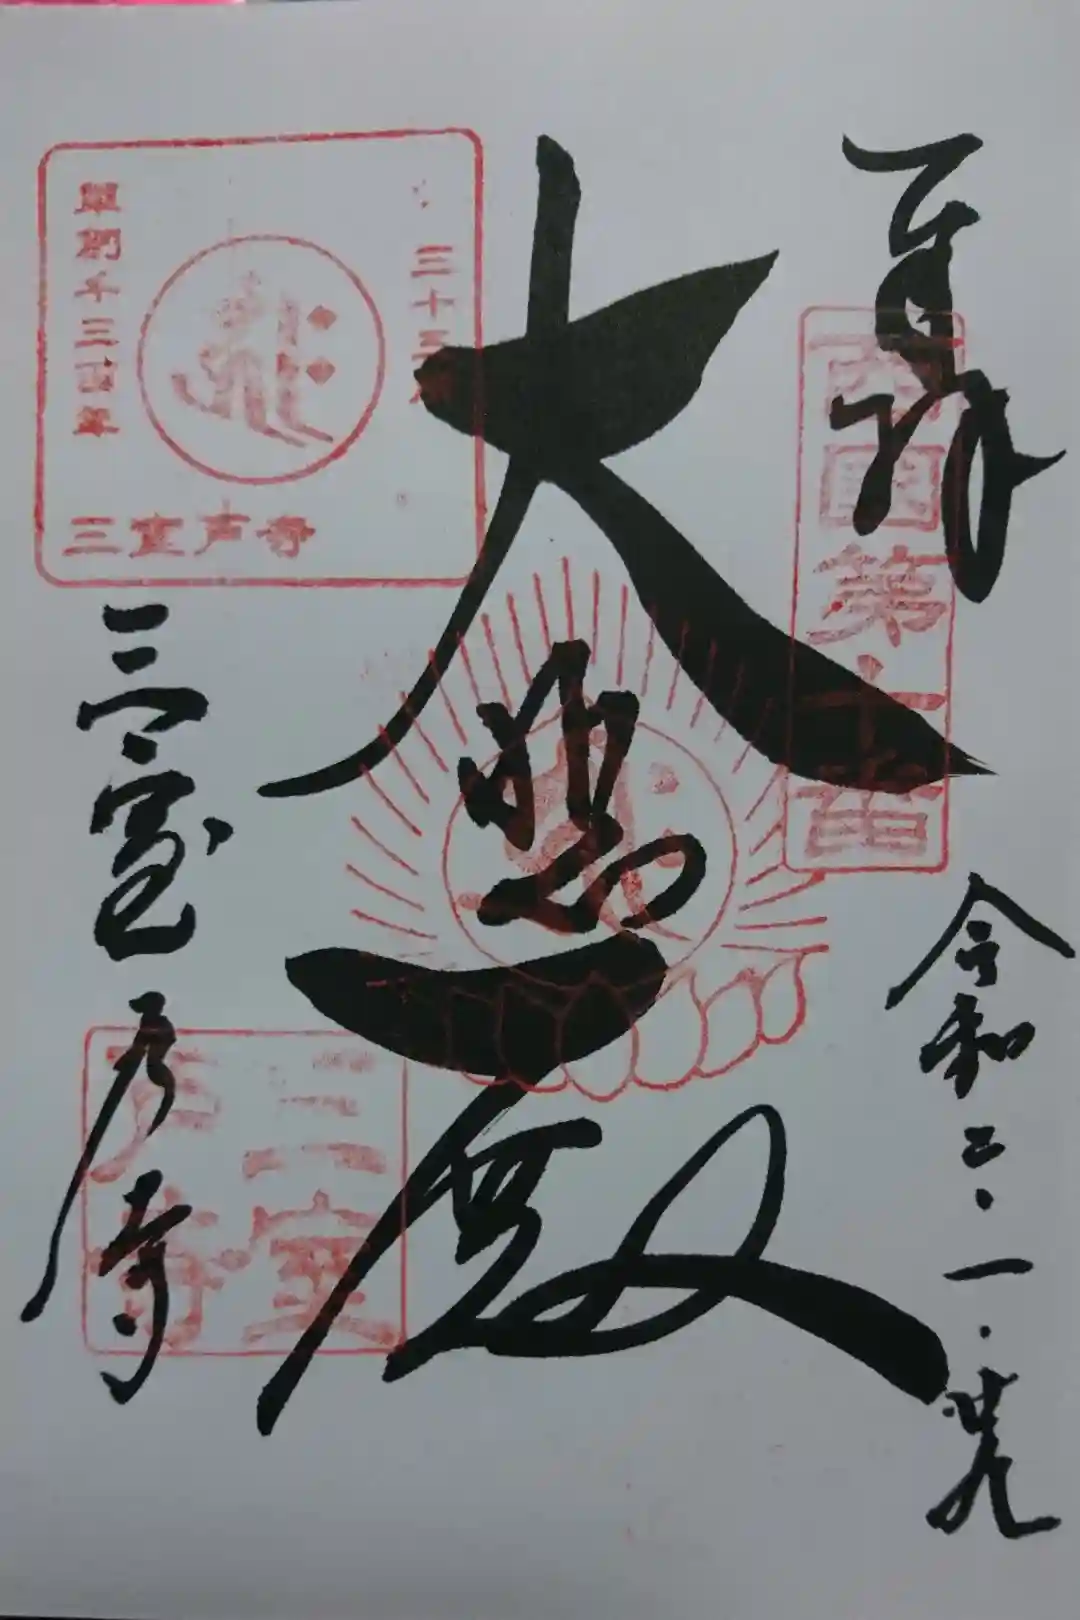 奉拝
西国第十番
令和二・一・廿九
大悲殿
三十三所
草創千三百年
三室戸寺
三室戸寺
三室戸寺